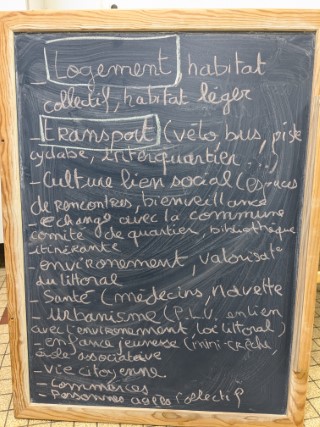 - Logement, habitat
collectif, habitat léger
- transport (vélo bus, piste
cyclabe, interquartier ...)
- Culture lien social (espaces
de rencontres, bienveillance
échange avec la commune
comité de quartier, bibliothèque
itinérante
- environement, valorisat°
du littoral
- Santé (médecins, navette
- urbanisme (P.L.U, en lien
avec l'environnement, loi littoral)
- enfance jeunesse (mini-crèche,
associative
- vice citoyenne.
- Commerces
- Personnes agées collectif